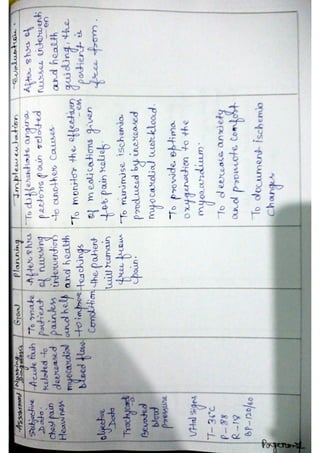 Assessment
Subjective
Data:
chest pain
Heaviness
Objective
Data
Trachycard
Elevated
blood
pressure
Vital signs
T-36°C
P-88
R-18
BP-130/60
Nursing
Diagnosis
Acute Pain
related to
decreased
myocardial
blood flow
Goal
To make
patient
painless
and help
to improve
condition
Planning
After 8hrs
of nursing
intervention
and health
teachings
the patient
will remain
free from
pain.
Implementation
To differentiate angina
pectoris pain related
to another causes
To monitor the effectiven
-ess
of medications given
for pain relief.
To minimise ischemia
produced by increased
myocardial workload.
To provide optima
oxygenation to the
myocardium.
To decrease anxiety
and promote comfort
To document ischemia
changes
Evaluation
After 8hrs of
nurses interventi
-on
and health
guiding, the
patient is
free from.